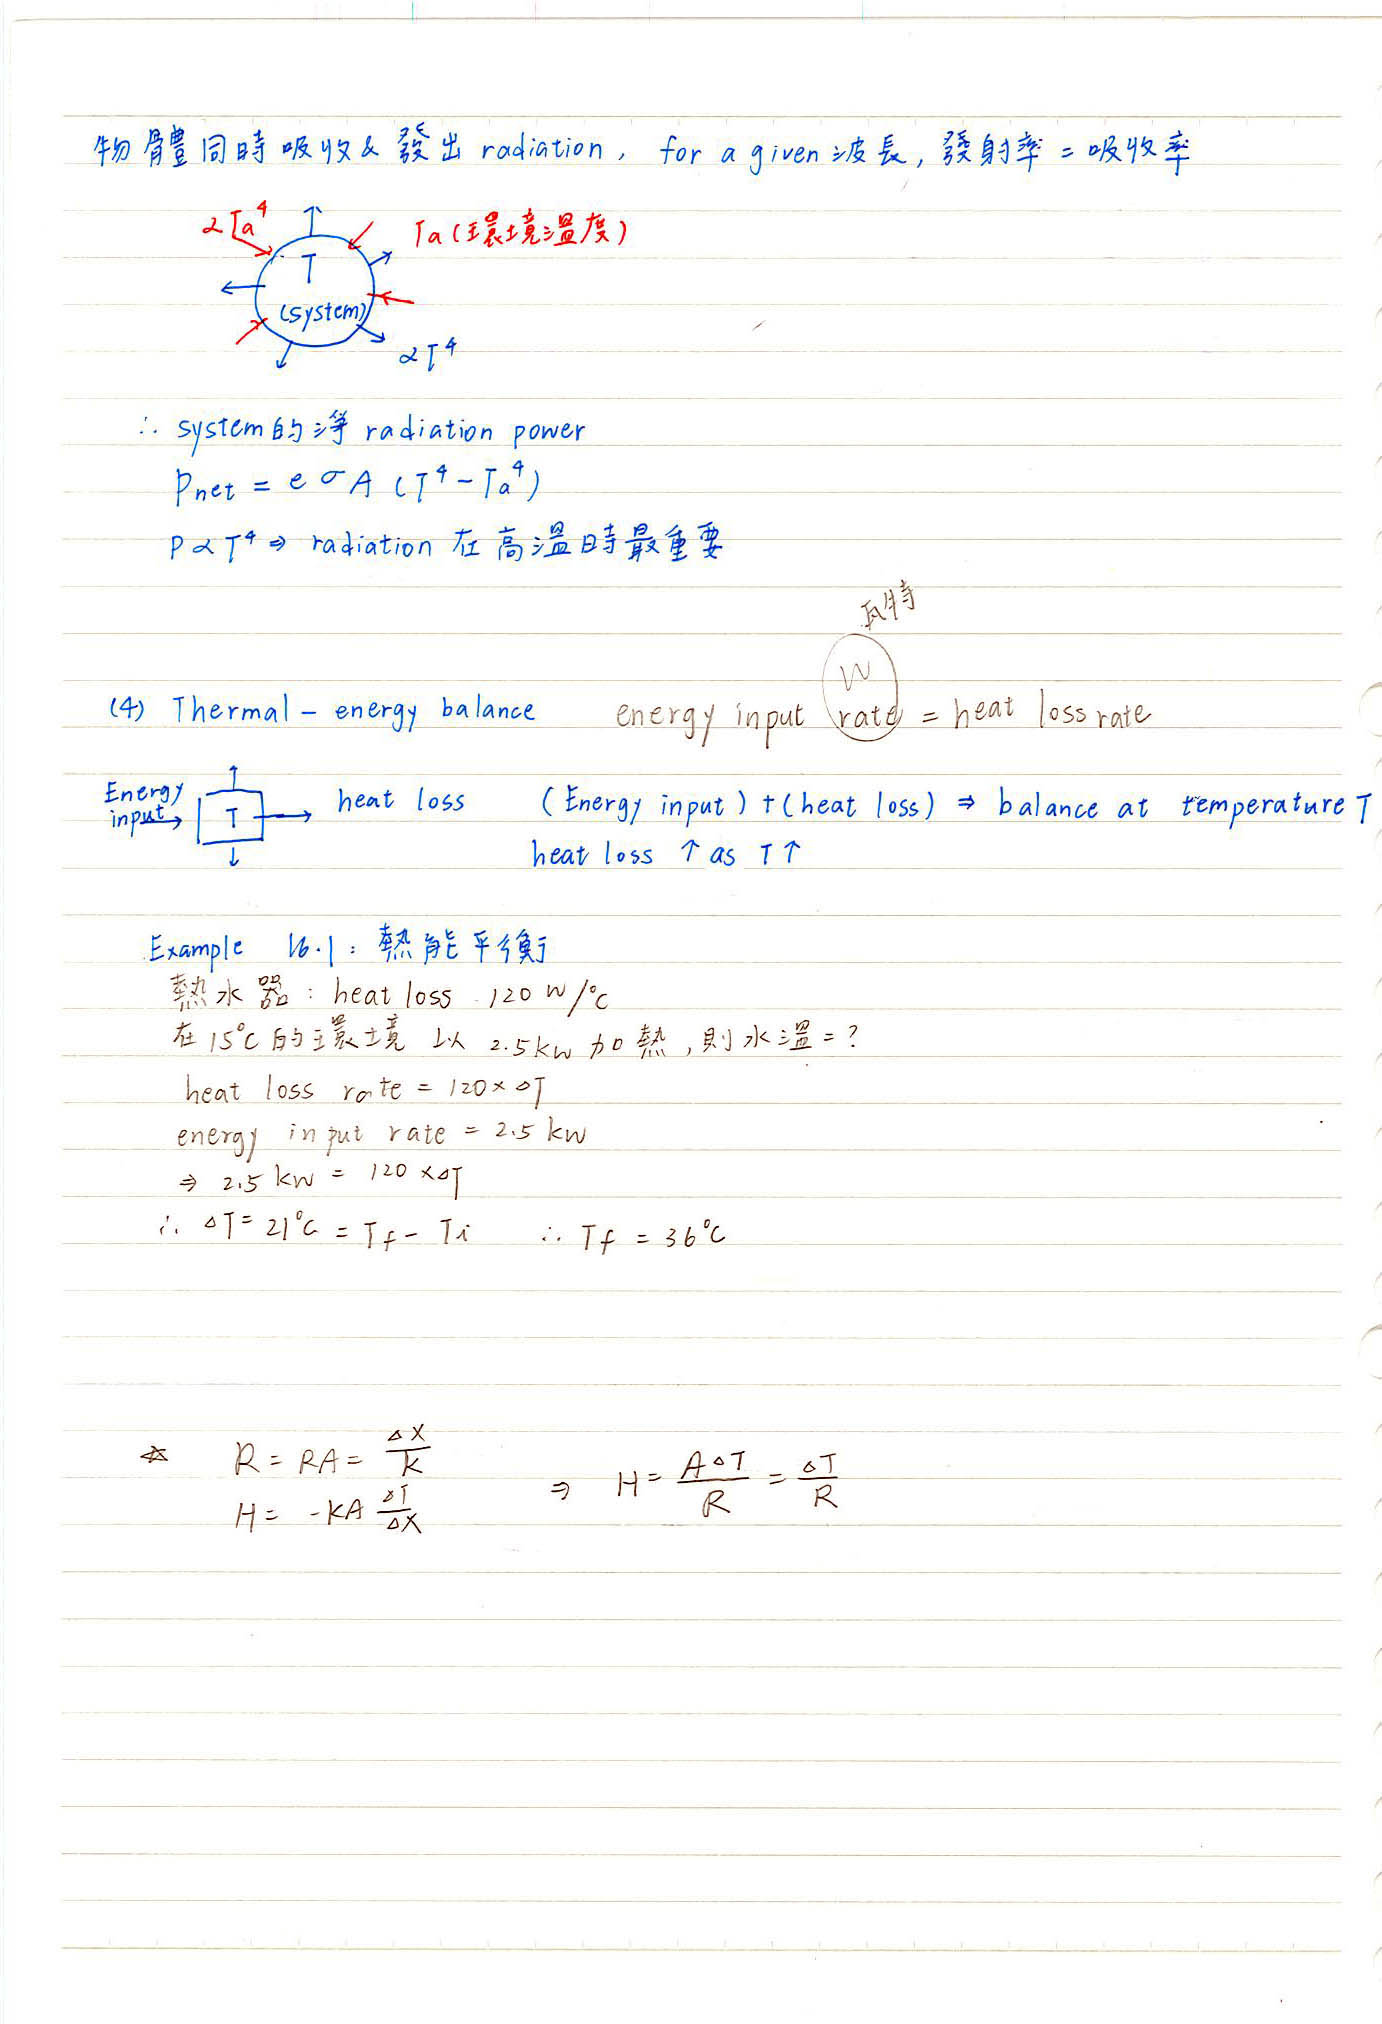 物體同時吸收&發出 radiation, for a given 波長, 發射率=吸收率
αTa⁴
Ta(環境溫度)
T
(system)
αT⁴
∴ system的淨 radiation power
Pnet = eσA (T⁴-Ta⁴)
P∝T⁴ ⇒ radiation 在高溫時最重要
瓦特
W
(4) Thermal-energy balance energy input rate = heat loss rate
Energy input → T → heat loss (Energy input)+(heat loss) ⇒ balance at temperature T
heat loss ↑ as T↑
Example 16.1: 熱能平衡
熱水器: heat loss 120 W/°C
在15°C的環境 以 2.5kW 加熱,則水溫=?
heat loss rate = 120×ΔT
energy input rate = 2.5 kW
⇒ 2.5 kW = 120×ΔT
∴ ΔT=21°C = Tf-Ti ∴ Tf = 36°C
☆ R = RA = Δx/k
H = -kA ΔT/Δx ⇒ H = AΔT/R = ΔT/R